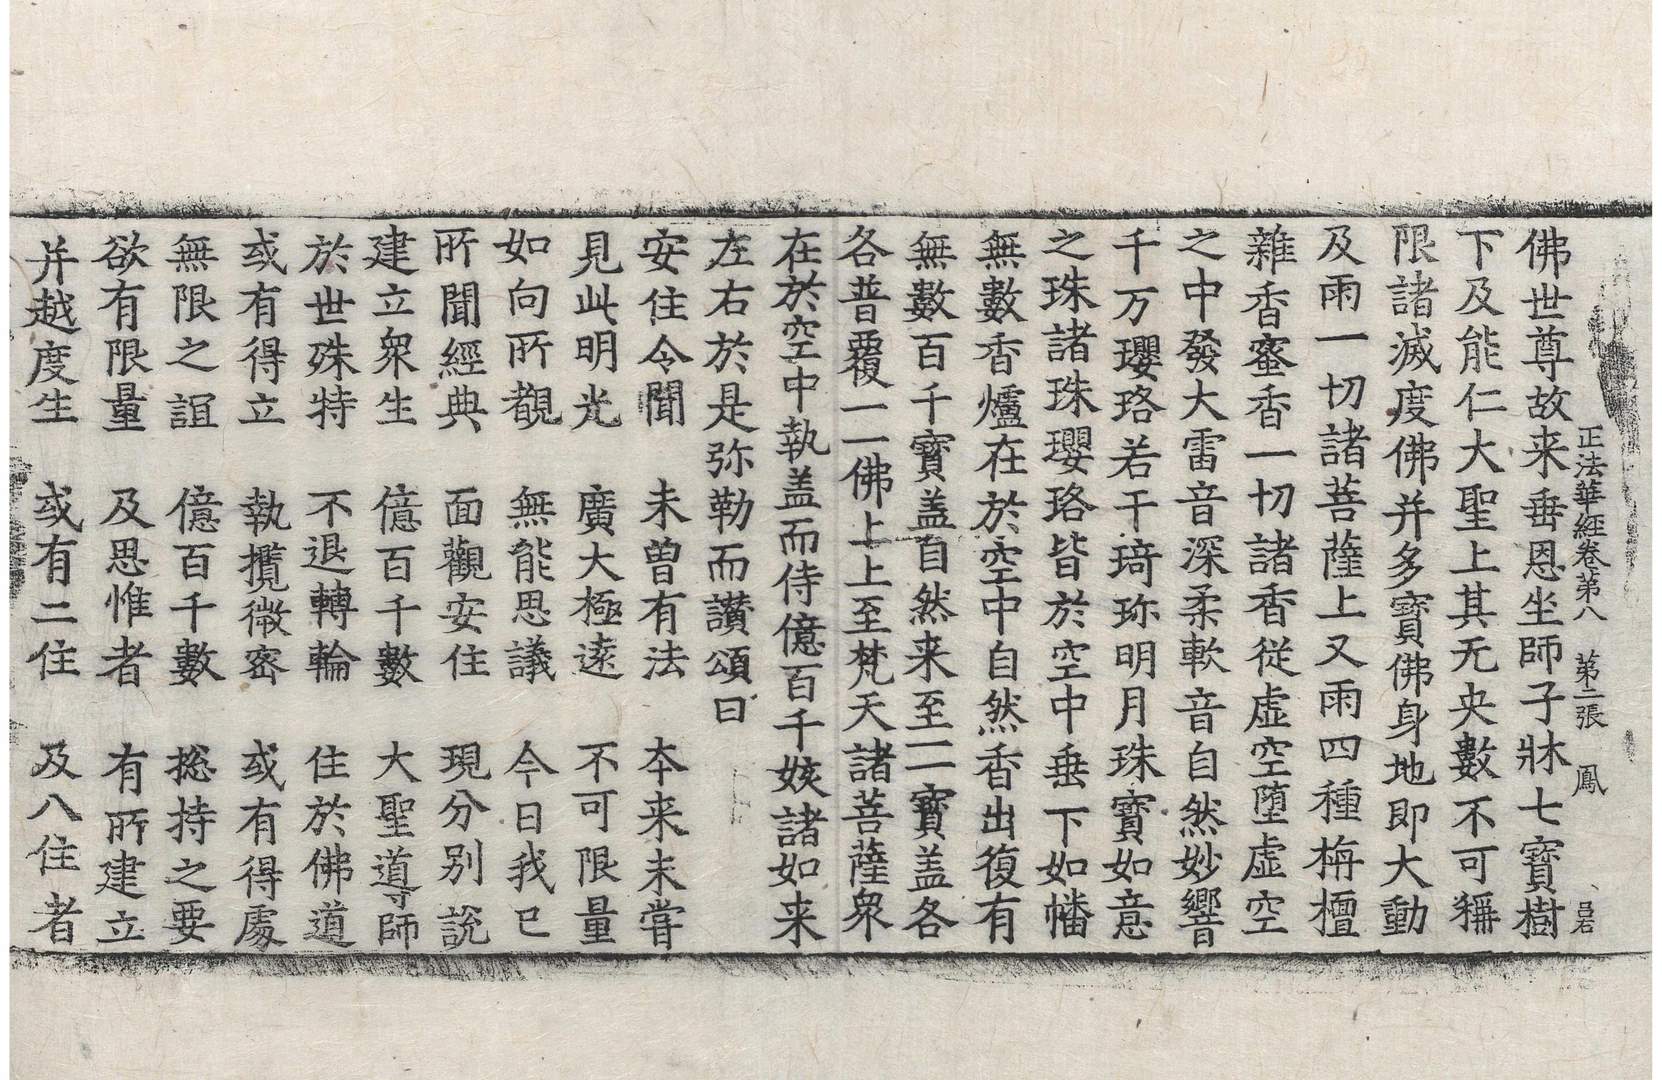 正法華経卷第八 第二張 鳳 呂右
佛世尊故来垂恩坐師子牀七寳樹
下及能仁大聖上其无央數不可稱
限諸滅度佛并多寳佛身地即大動
及雨一切諸菩薩上又雨四種栴檀
雜香蜜香一切諸香從虛空墮虛空
之中發大雷音深柔軟音自然妙響
千万瓔珞若干琦珎明月珠寳如意
之珠諸珠瓔珞皆於空中垂下如幡
無數香爐在於空中自然香出復有
無數百千寳盖自然来至一一寳盖各
各普覆一一佛上上至梵天諸菩薩衆
在於空中執盖而侍億百千姟諸如来
左右於是弥勒而讃頌曰
安住令聞 未曾有法 本来未嘗
見此明光 廣大極遠 不可限量
如向所覩 無能思議 今日我已
所聞經典 面觀安住 現分別說
建立衆生 億百千數 大聖導師
於世殊特 不退轉輪 住於佛道
或有得立 執攬微密 或有得處
無限之誼 億百千數 揔持之要
欲有限量 及思惟者 有所建立
并越度生 或有二住 及八住者